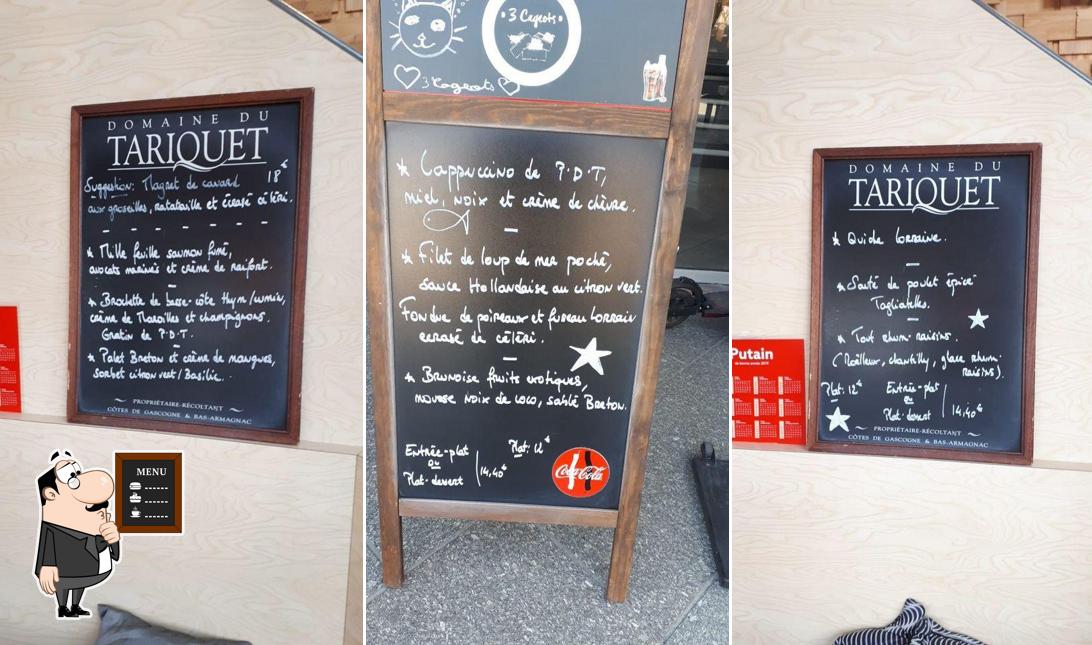 DOMAINE DU
TARIQUET
Suggestion: Magret de canard 18€
aux groseilles, ratatouille et écrasé céléri.
* Mille feuille saumon fumé,
avocats marinés et crème de raifort.
* Brochette de basse-côte thym/cumin,
crème de Maroilles et champignons.
Gratin de P.D.T.
* Palet Breton et crème de mangues,
sorbet citron vert/Basilic.
PROPRIÉTAIRE-RÉCOLTANT
CÔTES DE GASCOGNE & BAS-ARMAGNAC
MENU
3 Cageots
3 Cageots
* Cappuccino de P.D.T,
miel, noix et crème de chèvre.
* Filet de loup de mer poché,
sauce Hollandaise au citron vert.
Fondue de poireaux et fuseau Lorrain
ecrasé de céléri.
* Brunoise fruits exotiques,
mousse noix de coco, sablé Breton.
Entrée-plat
ou
Plat-dessert
14,40€
Plat: 12€
Coca-Cola
DOMAINE DU
TARIQUET
* Quiche Lorraine.
* Sauté de poulet épicé
Tagliatelles.
* Tout rhum-raisins.
(Moëlleux, chantilly, glace rhum-
raisins).
Plat: 12€
Entrée-plat
ou
Plat-dessert
14,40€
PROPRIÉTAIRE-RÉCOLTANT
CÔTES DE GASCOGNE & BAS-ARMAGNAC
Putain